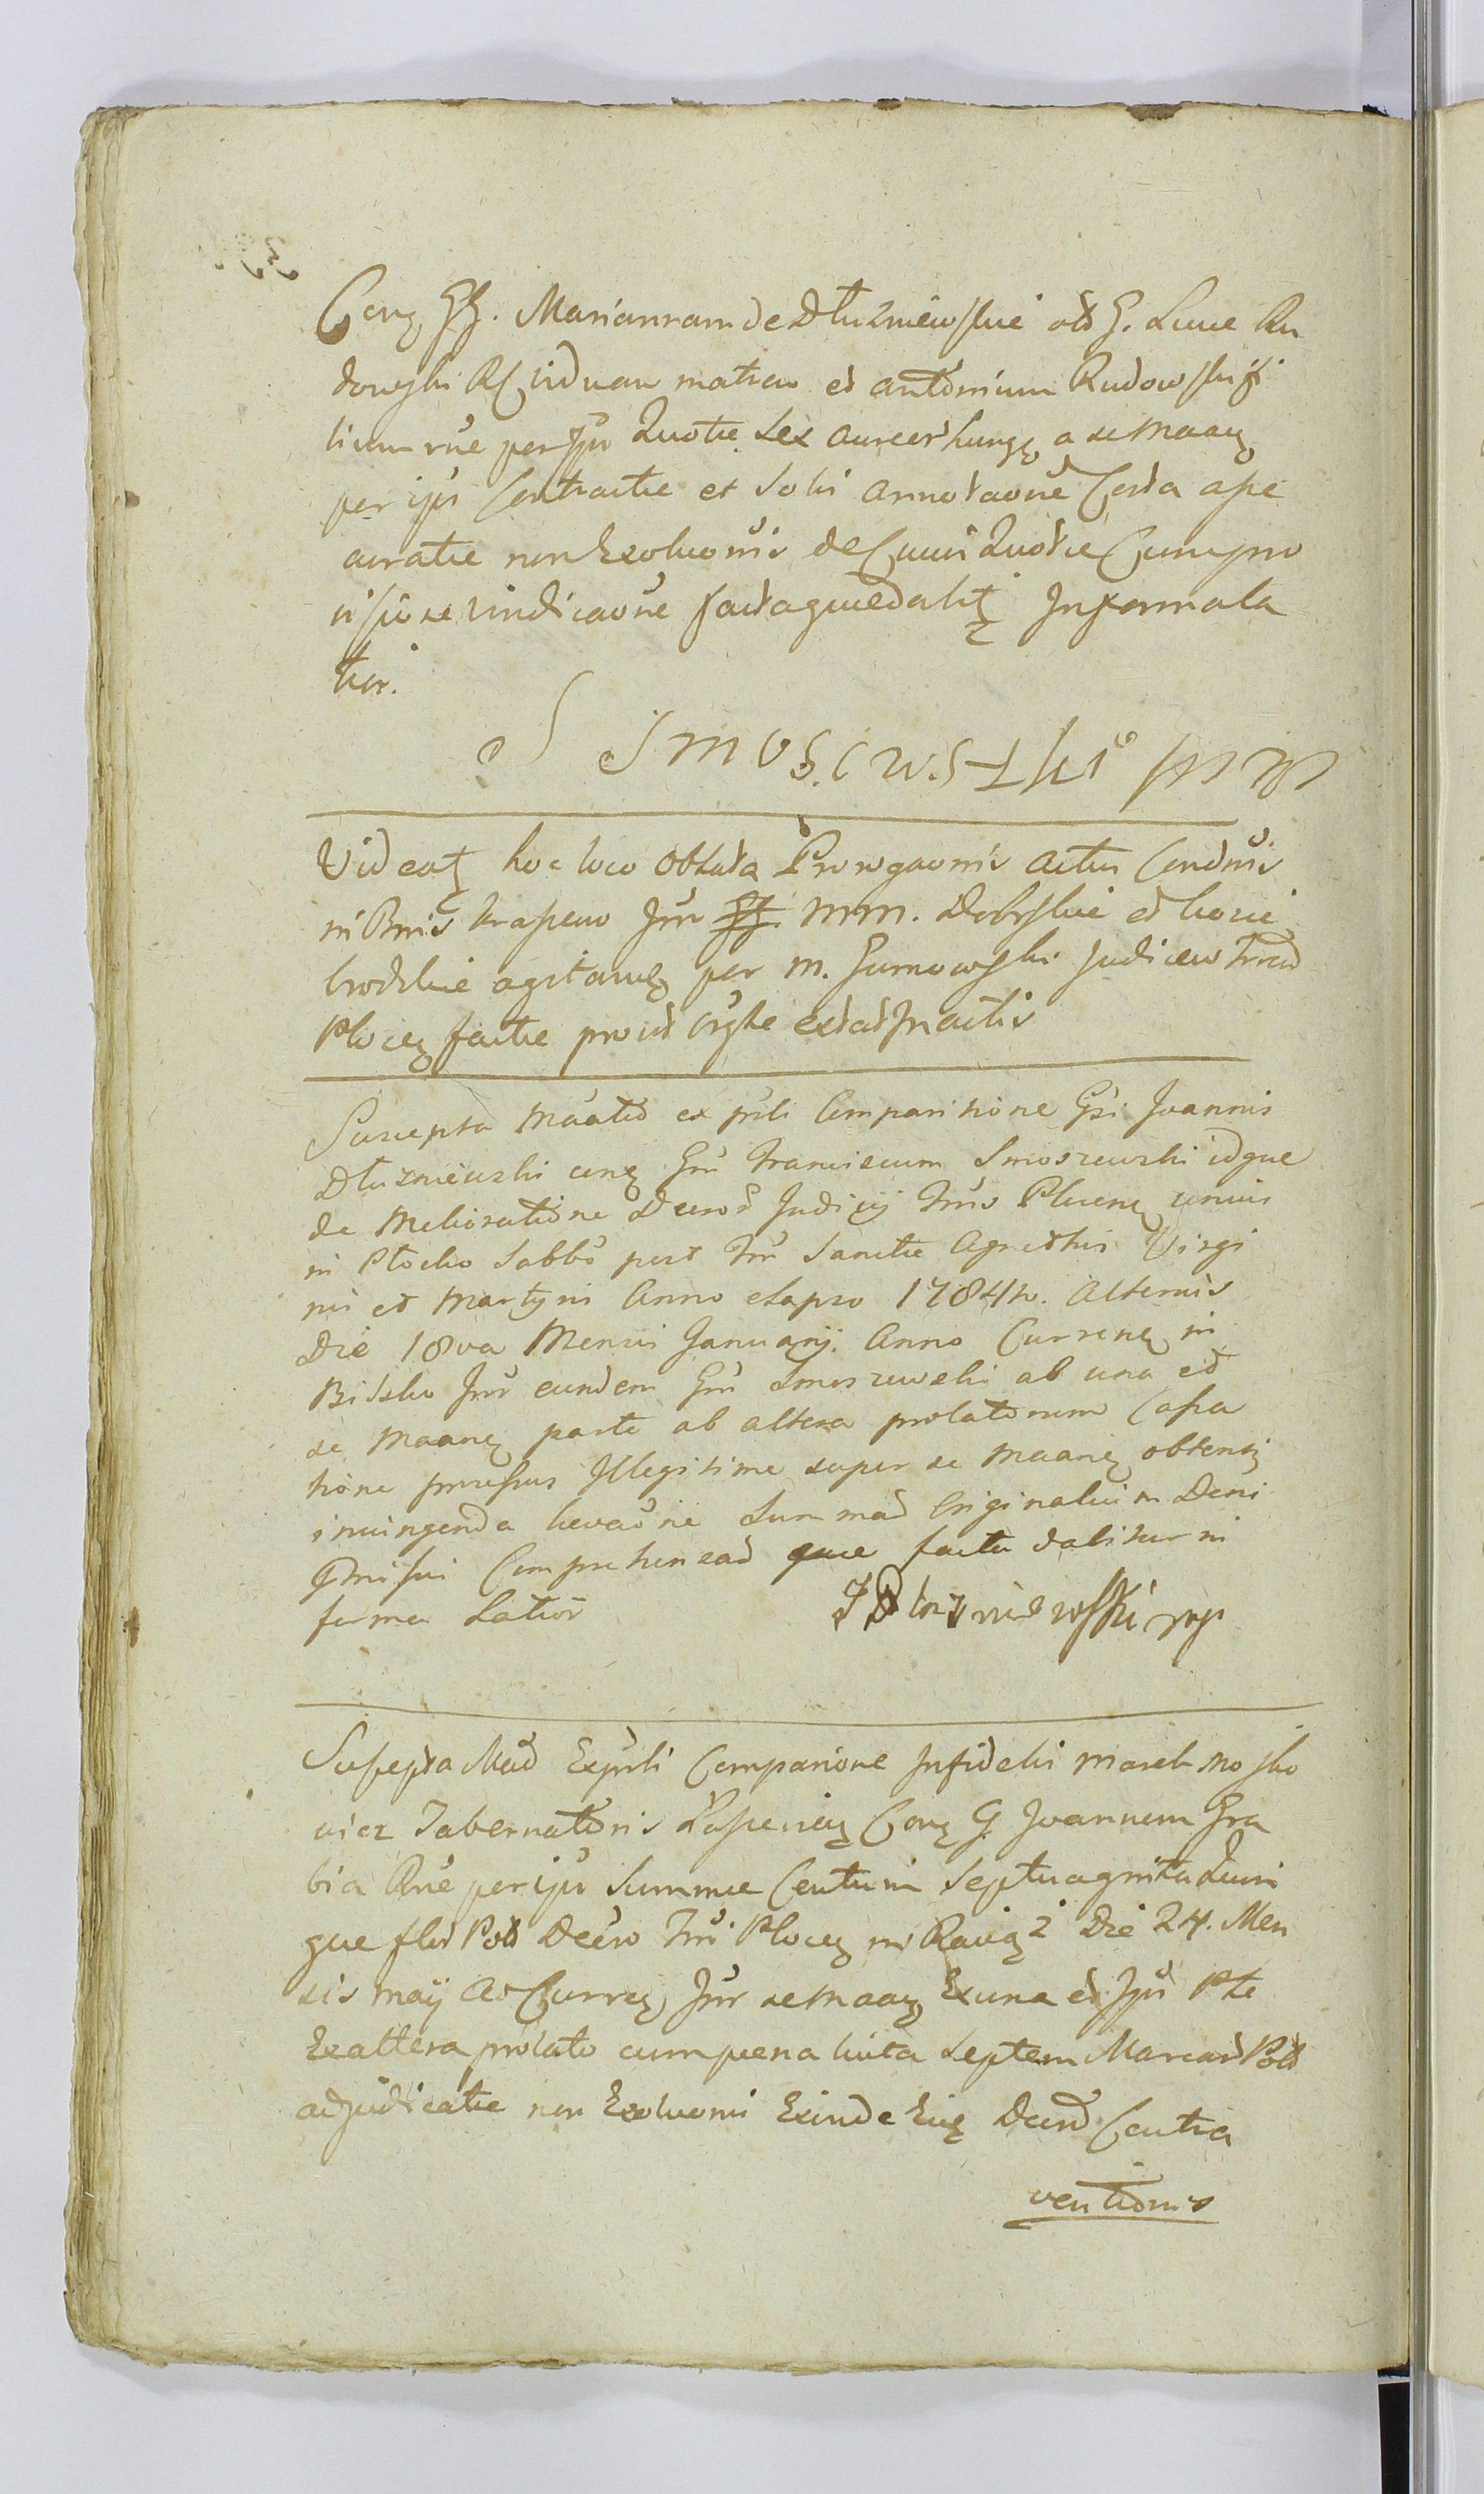 Conq GG. Mariannam de Dłuzniewskie olid G. Lucæ Ru
dowski Rel viduam matrem et antonium Rudowski fi
lium rne per ipsu Quotæ sex aureor hungq a se Maaq
per ipsi Contractæ et Sohi annotaone Certa asse
curatæ non Exoluonis de Cuius Quotæ Cum pro
visu se vindicaone factaque dabit Informa la
tior.
S Smoszewski mp
Videat hoc loco Oblata Prorogaonis actus Condnis
in Bnis Krasewo Inr MM. Dobrskie et
brodzkie agitanq per M. Gumowski Judicem Trrem
Plocen factæ prout orgle extat In actis
Suscepta Maatio ex psnli Comparitione Gsi Joannis
Dłuzniewski conq Gm Franciscum Smoszewski idque
de Melioratione Decrot Judicij Trris Plocenq unius
in Płocko Sabbo post Fm Sanctæ Agnethis Virgi
nis et Martyris Anno elapso 1784to. Alternis
Die 18va Mensis Januarij Anno Currenq in
Bielsko Inr eundem Gm Smoszewski ab una et
se Maanq parte ab altera prolatorum Cassa
tione processus Illegitime super se Maanq obtenti
iniungenda levaone Summas Originalium Deni
Qmissi Comprehensas quæ facta dabitur in
forma Latior
J Dłuzniewski mp
Suscepta Mað Expsnli Comparione Infidelis Marek Mosko
wicz Tabernatoris Conq G. Joannem Gra
bia Rne per ipsu Summæ Centum Septuaginta Quin
que flor Pol Decro Trri Plocen in Raciąz Die 24. Men
sis Maij Ao Currenq Inr se Maaq Ex una et Ipsu Pte
Ex altera prolato cum pena luita Septem Marcar Pol
adjudicatæ non Exoluonis Exinde Eiq Decro Contra
ventionis